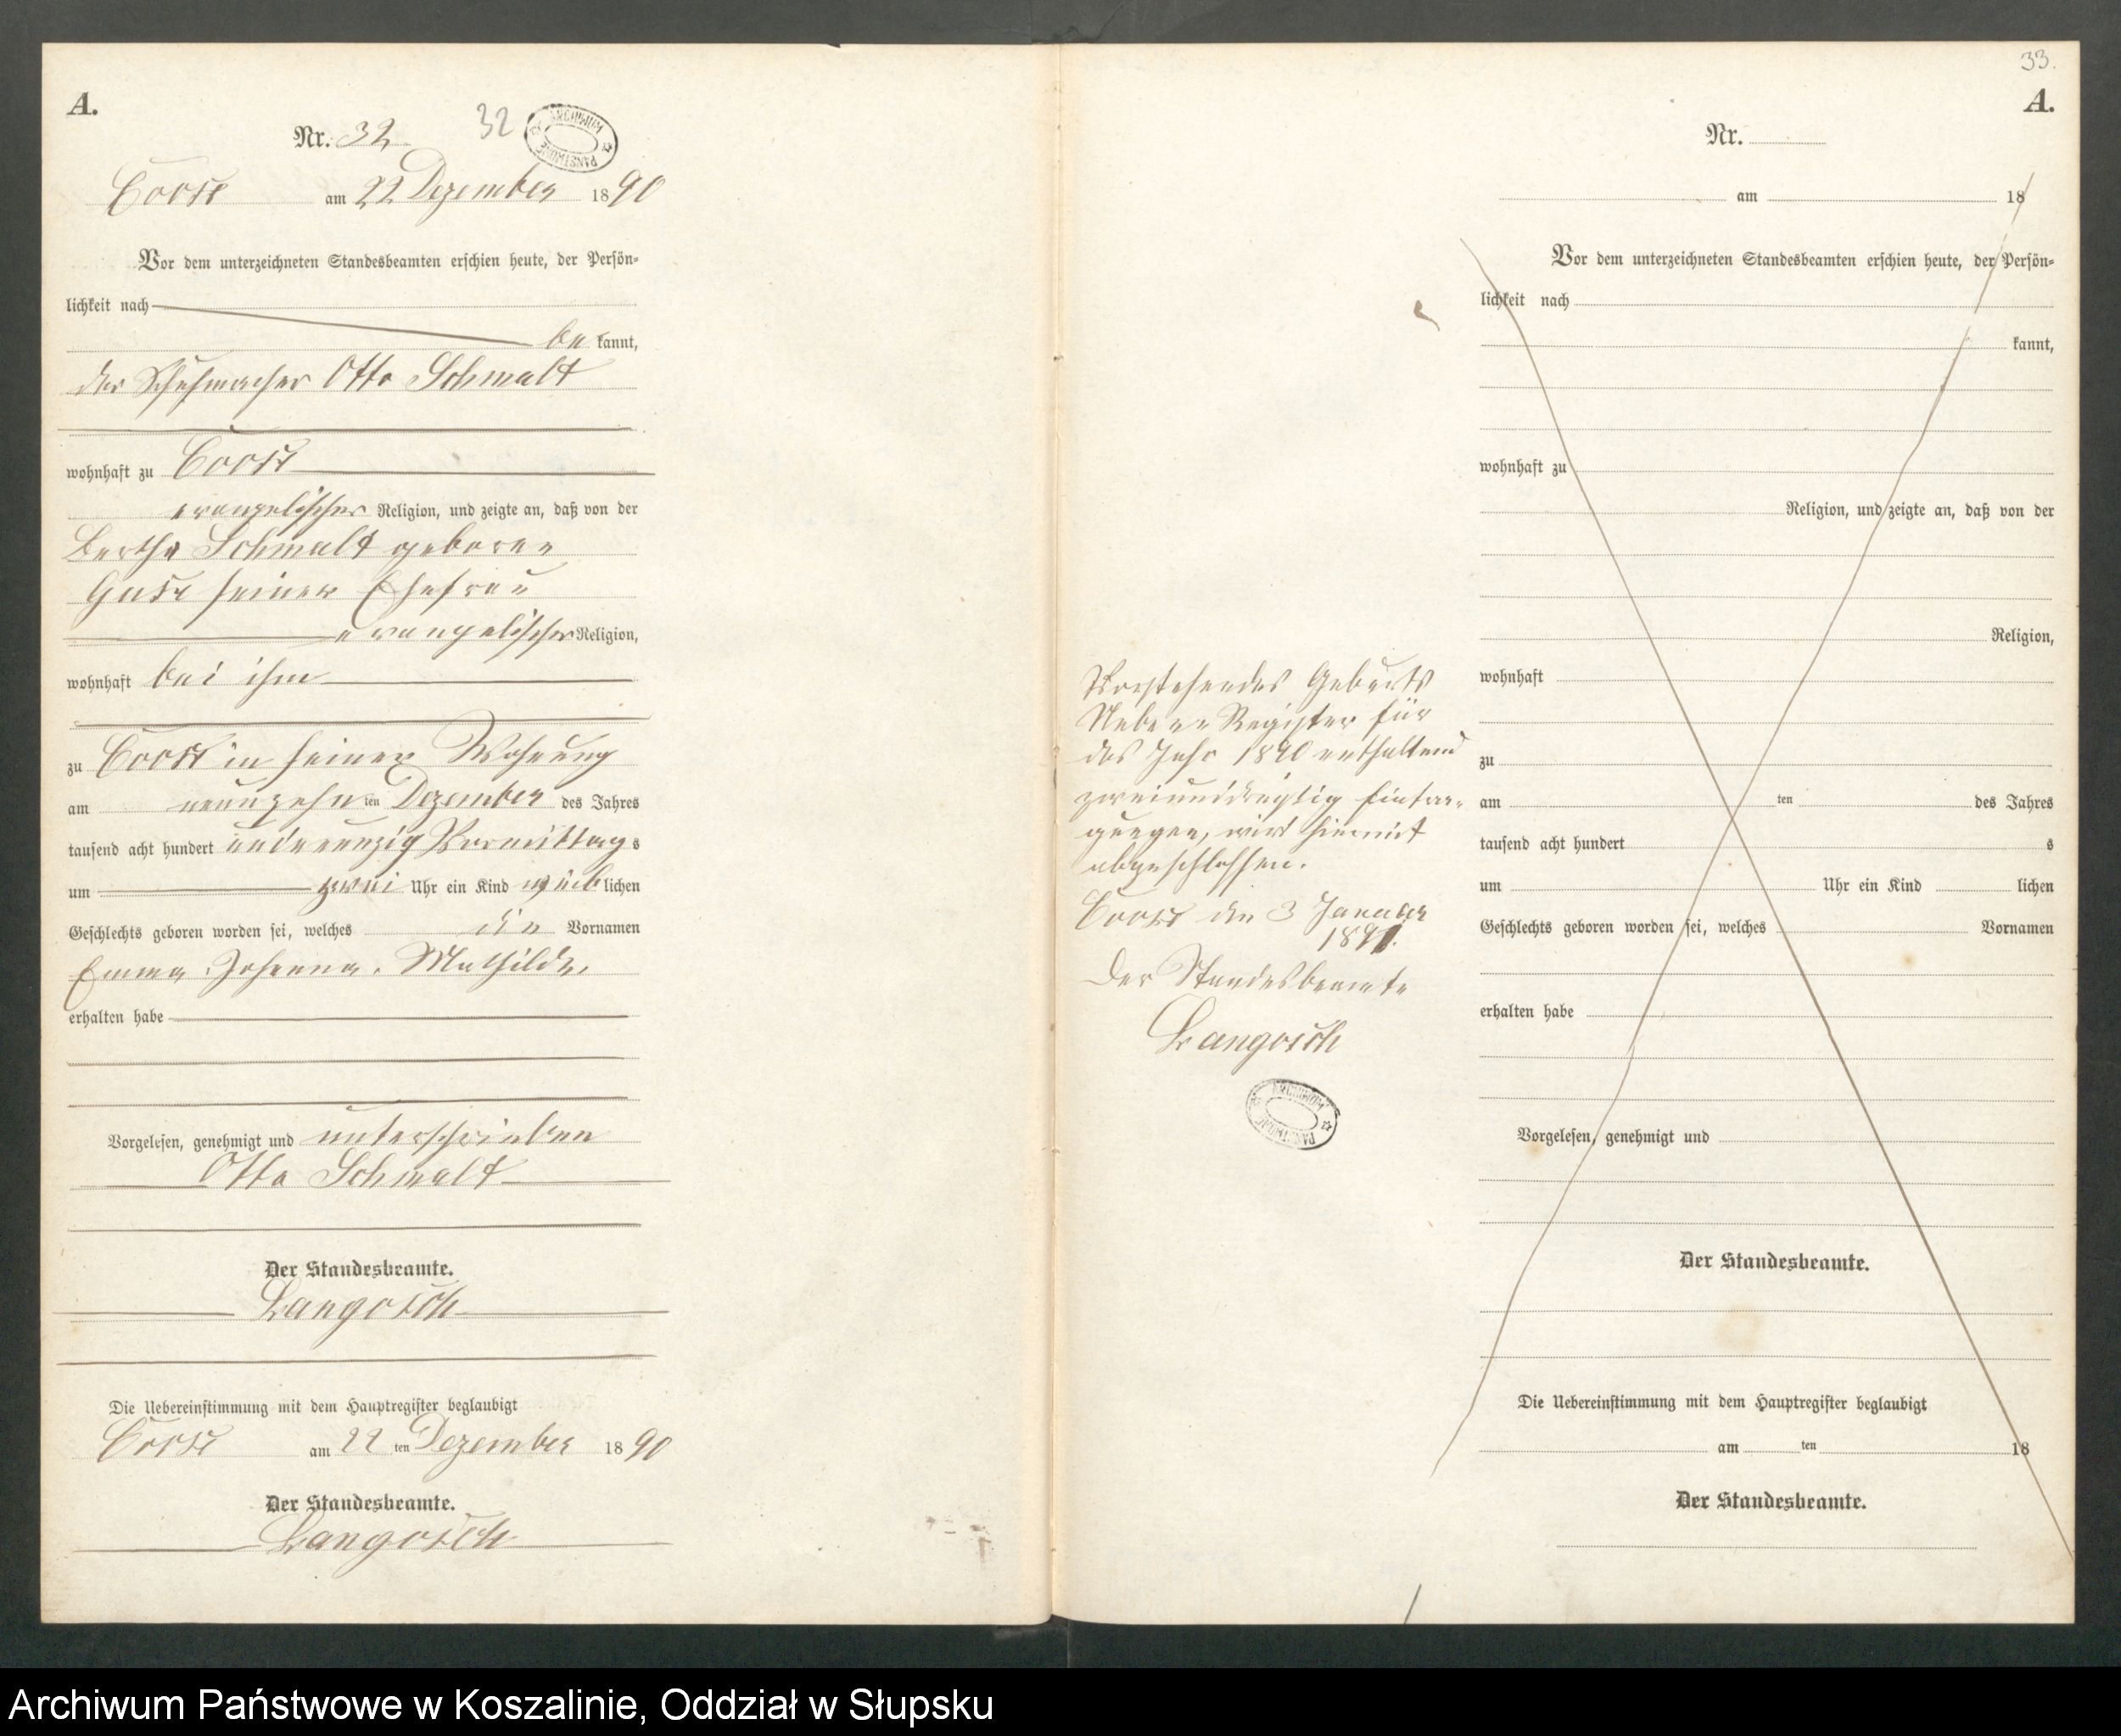 A.
Nr. 32
32
ARCHIWUM PAŃSTWOWE
Coose am 22 Dezember 1890
Vor dem unterzeichneten Standesbeamten erschien heute, der Persön-
lichkeit nach
be kannt,
der Schuhmacher Otto Schmalt
wohnhaft zu Coose
evangelischer Religion, und zeigte an, daß von der
Bertha Schmalt geborne
seiner Ehefrau
evangelischer Religion,
wohnhaft bei ihm
zu Coose in seiner Wohnung
am neunzehn ten Dezember des Jahres
tausend acht hundert undneunzig Vormittag s
um zwei Uhr ein Kind weib lichen
Geschlechts geboren worden sei, welches die Vornamen
Emma, Johanna, Mathilde,
erhalten habe
Vorgelesen, genehmigt und unterschrieben
Otto Schmalt
Der Standesbeamte.
Langosch
Die Uebereinstimmung mit dem Hauptregister beglaubigt
Coose am 22 ten Dezember 1890
Der Standesbeamte.
Langosch
Vorstehendes Geburts
Neben-Register für
das Jahr 1890 enthaltend
zweiunddreißig Eintra-
gungen, wird hiermit
abgeschlossen.
Coose den 3 Januar
1891.
Der Standesbeamte
Langosch
ARCHIWUM PAŃSTWOWE
33.
A.
Nr.
am 18
Vor dem unterzeichneten Standesbeamten erschien heute, der Persön-
lichkeit nach
kannt,
wohnhaft zu
Religion, und zeigte an, daß von der
Religion,
wohnhaft
zu
am ten des Jahres
tausend acht hundert s
um Uhr ein Kind lichen
Geschlechts geboren worden sei, welches Vornamen
erhalten habe
Vorgelesen, genehmigt und
Der Standesbeamte.
Die Uebereinstimmung mit dem Hauptregister beglaubigt
am ten 18
Der Standesbeamte.
Archiwum Państwowe w Koszalinie, Oddział w Słupsku